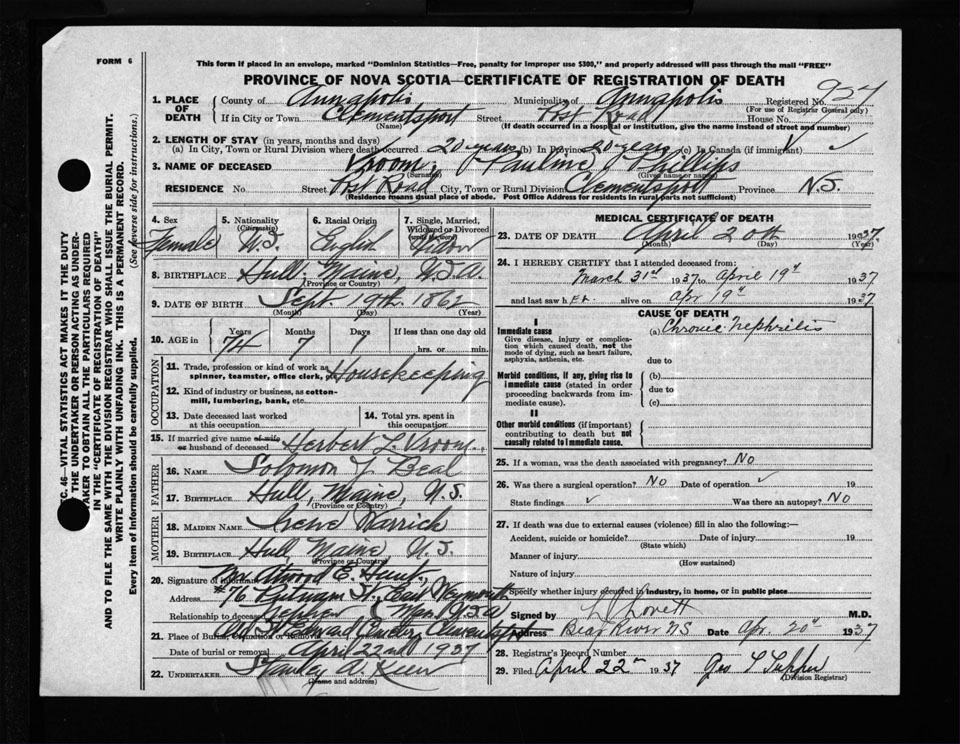 FORM 6
This form if placed in an envelope, marked "Dominion Statistics—Free, penalty for improper use $300," and properly addressed will pass through the mail "FREE"
PROVINCE OF NOVA SCOTIA—CERTIFICATE OF REGISTRATION OF DEATH
1. PLACE OF DEATH County of Annapolis Municipality of Annapolis Registered No. 957
(For use of Registrar General only)
If in City or Town Clementsport Street Post Road House No.
(Name) (If death occurred in a hospital or institution, give the name instead of street and number)
2. LENGTH OF STAY (in years, months and days)
(a) In City, Town or Rural Division where death occurred 20 years (b) In Province 20 years (c) In Canada (if immigrant) ✓
3. NAME OF DECEASED Vroom, (Pauline) Phillips
(Surname) (Given name or names)
RESIDENCE No. Street Post Road City, Town or Rural Division Clementsport Province N.S.
(Residence means usual place of abode. Post Office Address for residents in rural parts not sufficient)
SEC. 46—VITAL STATISTICS ACT MAKES IT THE DUTY
OF THE UNDERTAKER OR PERSON ACTING AS UNDER-
TAKER TO OBTAIN ALL THE PARTICULARS REQUIRED
IN THE "CERTIFICATE OF REGISTRATION OF DEATH"
AND TO FILE THE SAME WITH THE DIVISION REGISTRAR WHO SHALL ISSUE THE BURIAL PERMIT.
WRITE PLAINLY WITH UNFADING INK. THIS IS A PERMANENT RECORD.
Every item of information should be carefully supplied. (See reverse side for instructions.)
4. Sex Female
5. Nationality (Citizenship) U.S.
6. Racial Origin English
7. Single, Married, Widowed or Divorced (write the word) Widow
8. BIRTHPLACE Hull, Maine, U.S.A.
(Province or Country)
9. DATE OF BIRTH Sept. 19th. 1862
(Month) (Day) (Year)
10. AGE in Years 74 Months 7 Days 1 If less than one day old hrs. or min.
OCCUPATION
11. Trade, profession or kind of work as spinner, teamster, office clerk, Housekeeping
12. Kind of industry or business, as cotton-mill, lumbering, bank, etc.
13. Date deceased last worked at this occupation
14. Total yrs. spent in this occupation
15. If married give name of wife or husband of deceased Herbert L. Vroom.
FATHER
16. NAME Solomon J. Beal
17. BIRTHPLACE Hull, Maine, U.S.
(Province or Country)
MOTHER
18. MAIDEN NAME Irene Warrick
19. BIRTHPLACE Hull, Maine, U.S.
(Province or Country)
20. Signature of informant Mr. Atwood E. Hunt,
Address #76 Putnam St. East Weymouth
Relationship to deceased Nephew (Mass. U.S.A)
21. Place of Burial, Cremation or Removal Edward Clementsport
Date of burial or removal April 22nd 1937
22. UNDERTAKER Stanley A.
(Name and address)
MEDICAL CERTIFICATE OF DEATH
23. DATE OF DEATH April 20th 1937
(Month) (Day) (Year)
24. I HEREBY CERTIFY that I attended deceased from:
March 31st 1937 to April 19th 1937
and last saw her alive on Apr 19th 1937
CAUSE OF DEATH
I
Immediate cause (a) Chronic Nephritis
Give disease, injury or complication which caused death, not the mode of dying, such as heart failure, asphyxia, asthenia, etc. due to
Morbid conditions, if any, giving rise to immediate cause (stated in order proceeding backwards from immediate cause). (b) due to (c)
II
Other morbid conditions (if important) contributing to death but not causally related to immediate cause.
25. If a woman, was the death associated with pregnancy? No
26. Was there a surgical operation? No Date of operation ✓ 19
State findings ✓ Was there an autopsy? No
27. If death was due to external causes (violence) fill in also the following:—
Accident, suicide or homicide? Date of injury 19
(State which)
Manner of injury
(How sustained)
Nature of injury
Specify whether injury occurred in industry, in home, or in public place
Signed by Lovett M.D.
Address Bear River N.S Date Apr. 20th 1937
28. Registrar's Record Number
29. Filed April 22nd 1937 Geo L Tupper
(Division Registrar)